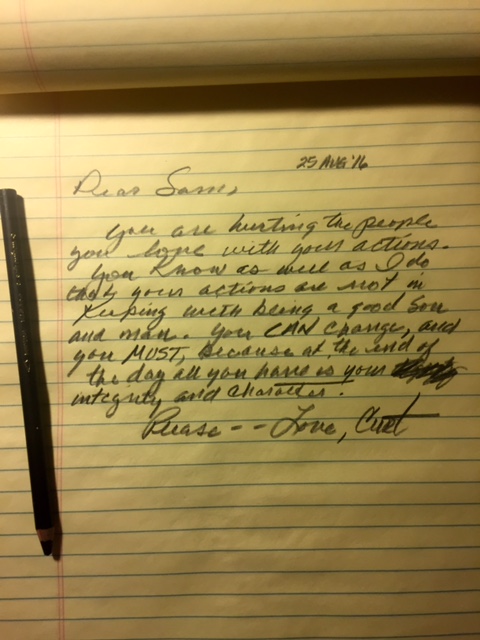 25 AUG '16
Dear
You are hurting the people
you love with your actions.
You know as well as I do
that your actions are not in
keeping with being a good son
and man. You CAN change, and
you MUST, because at the end of
the day all you have is your
integrity and character.
Please -- Love, Curt